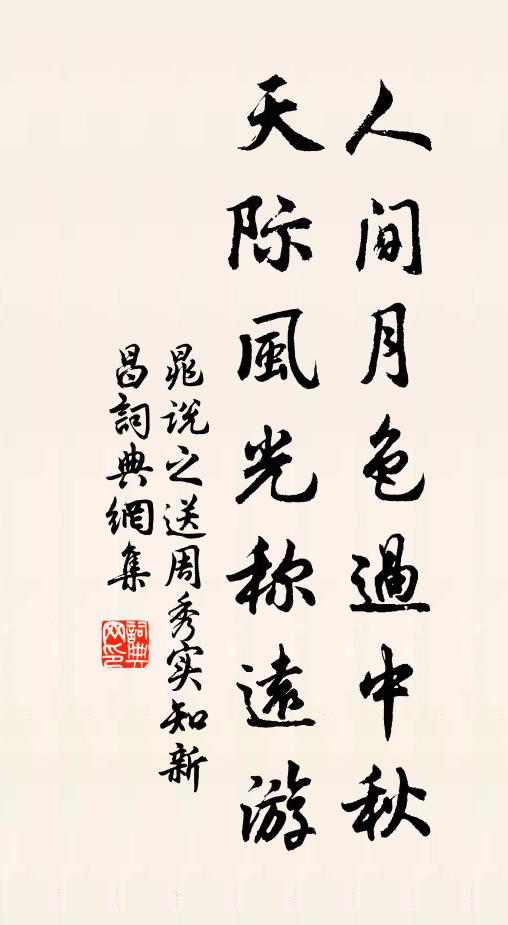 人間月色過中秋
天际風光称遠游
晁说之送周秀实知新
昌詞典網集
詞典网印